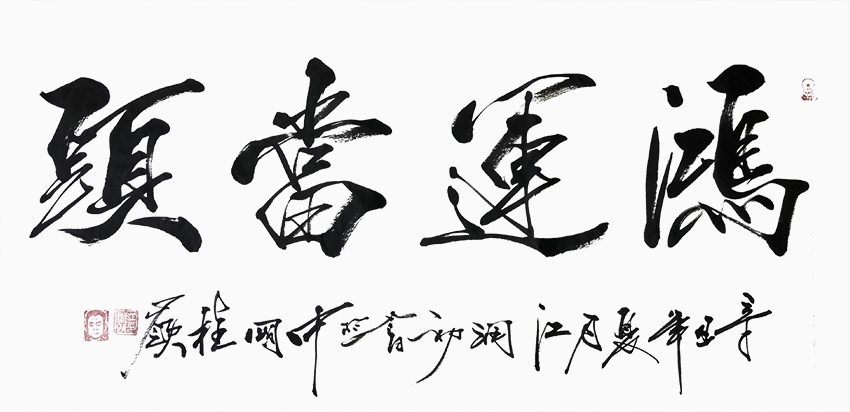 鴻運當頭
辛丑年夏月江润初書於中國桂嶺